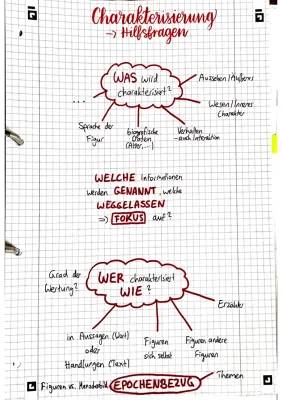 Charakterisierung
→ Hilfsfragen
WAS wird
charakterisiert?
Aussehen/Äußeres
Wesen/Inneres
Charakter
Verhalten
- auch Interaktion
biografische
Daten
(Alter,...)
Sprache der
Figur
...
WELCHE Informationen
werden GENANNT, welche
WEGGELASSEN
⇒ FOKUS auf?
Grad der
Wertung?
WER charakterisiert
WIE?
Erzähler
in Aussagen (Wort)
oder
Handlungen (Text)
Figuren
sich selbst
Figuren andere
Figuren
Themen
Figuren vs. Menschenbild EPOCHENBEZUG